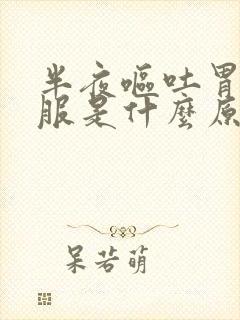 半夜嘔吐胃
服是什麼原
呆若萌